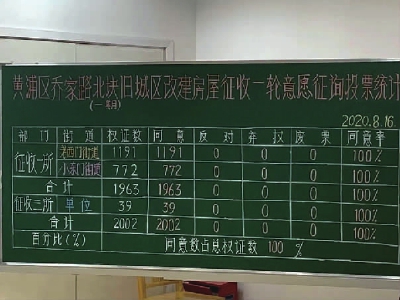 黄浦区乔家路北块旧城区改建房屋征收一轮意愿征询投票统计
(一期)
2020.8.16
部门 街道 权证数 同意 反对 弃权 废票 同意率
征收一所 老西门街道 1191 1191 0 0 0 100%
小东门街道 772 772 0 0 0 100%
合计 1963 1963 0 0 0 100%
征收三所 单位 39 39 0 0 0 100%
合计 2002 2002 0 0 0 100%
百分比(%) 同意数占总权证数 100 %